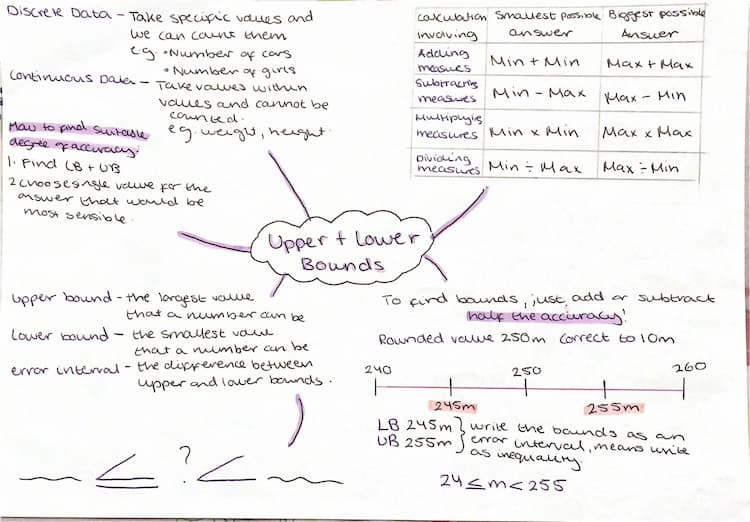 Discrete Data - Take specific values and
we can count them
e.g. • Number of cars
• Number of girls
Continuous Data - Take values within
values and cannot be
counted.
e.g. weight, height.
How to find suitable
degree of accuracy:
1. Find LB + UB
2 choose single value for the
answer that would be
most sensible.
Calculation involving | Smallest possible answer | Biggest possible Answer
Adding measures | Min + Min | Max + Max
Subtracting measures | Min - Max | Max - Min
Multiplying measures | Min x Min | Max x Max
Dividing measures | Min ÷ Max | Max ÷ Min
Upper + Lower
Bounds
upper bound - the largest value
that a number can be
Lower bound - the smallest value
that a number can be
error interval - the difference between
upper and lower bounds.
≤ ? <
To find bounds, just add or subtract
half the accuracy!
Rounded value 250m correct to 10m
240 250 260
245m 255m
LB 245m } write the bounds as an
UB 255m } error interval, means write
as inequality.
24 ≤ m < 255